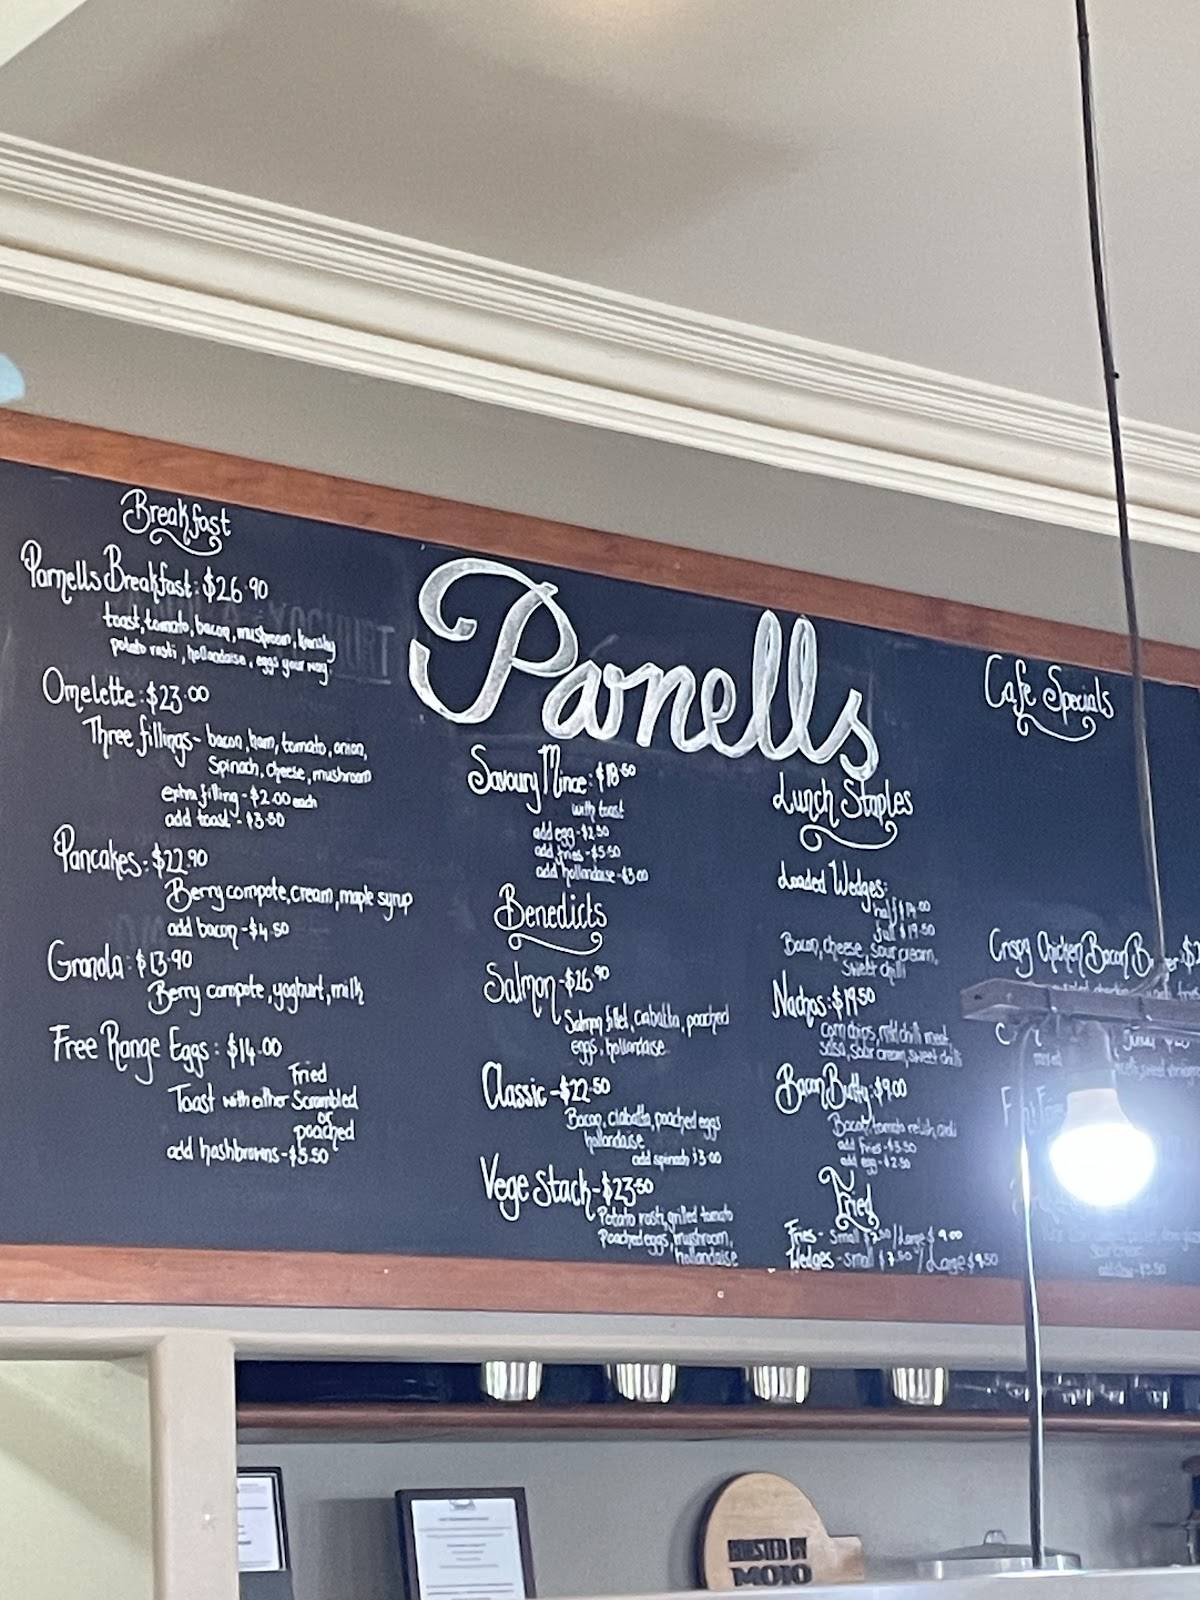 Breakfast
Parnells Breakfast: $26.90
toast, tomato, bacon, mushroom, kransky
potato rosti, hollandaise, eggs your way
Omelette: $23.00
Three fillings- bacon, ham, tomato, onion,
Spinach, cheese, mushroom
extra filling - $2.00 each
add toast - $3.50
Pancakes: $22.90
Berry compote, cream, maple syrup
add bacon - $4.50
Granola: $13.90
Berry compote, yoghurt, milk
Free Range Eggs: $14.00
Fried
Toast with either Scrambled
or
poached
add hashbrowns - $5.50
Parnells
Savoury Mince: $18.50
with toast
add egg - $2.50
add fries - $5.50
add hollandaise - $3.00
Benedicts
Salmon - $26.90
Salmon fillet, ciabatta, poached
eggs, hollandaise
Classic - $22.50
Bacon, ciabatta, poached eggs
hollandaise
add spinach $3.00
Vege Stack - $23.50
Potato rosti, grilled tomato
Poached eggs, mushroom,
hollandaise
Lunch Staples
Loaded Wedges:
half $14.00
full $19.50
Bacon, cheese, sour cream,
sweet chilli
Nachos: $19.50
corn chips, mild chilli meat,
salsa, sour cream, sweet chilli
Bacon Butty: $9.00
Bacon, tomato relish, aioli
add fries - $5.50
add egg - $2.50
Fried
Fries - Small $7.50 / Large $9.00
Wedges - small $7.50 / Large $9.50
Cafe Specials
Crispy Chicken Bacon
ROASTED BY
MOJO